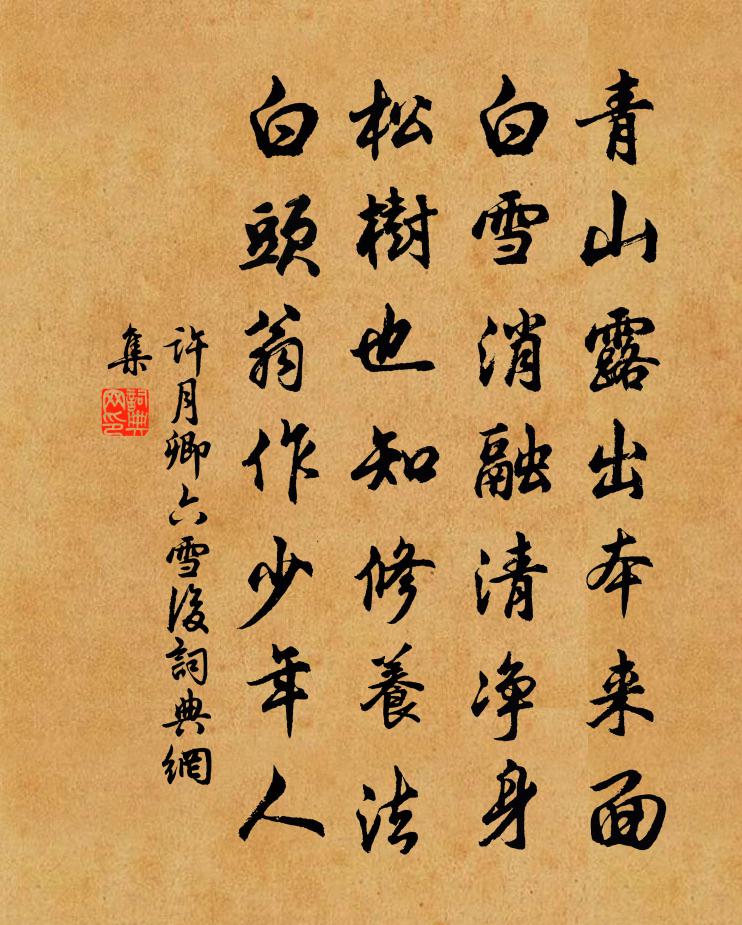 青山露出本来面
白雪消融清净身
松樹也知修養法
白頭翁作少年人
許月卿六雪後詞典網
集
詞典
网印